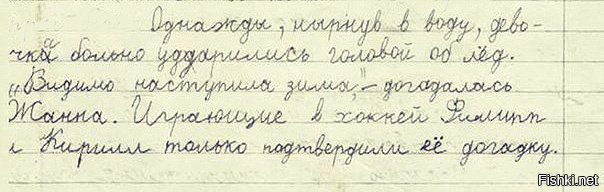 Однажды, нырнув в воду, дево-
чка больно уддарились головой об лёд.
„Видимо наступила зима," – догадалась
Жанна. Играющие в хоккей Филипп
и Кирилл только подтвердили её догадку.
Fishki.net